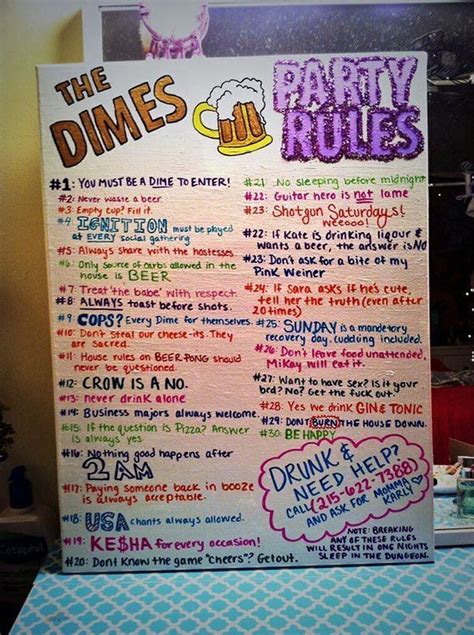 THE
DIMES
PARTY
RULES
#1: YOU MUST BE A DIME TO ENTER!
#2: Never waste a beer.
#3: Empty cup? Fill it.
#4: IGNITION must be played
at EVERY social gathering
#5: Always share with the hostesses.
#6: Only source of carbs allowed in the
house is BEER
#7: Treat 'the babe' with respect.
#8: ALWAYS toast before shots.
#9: COPS? Every Dime for themselves.
#10: Don't steal our cheese-its. They
are sacred.
#11: House rules on BEER PONG should
never be questioned.
#12: CROW IS A NO.
#13: never drink alone
#14: Business majors always welcome.
#15: If the question is Pizza? Answer
is always yes
#16: Nothing good happens after
2AM
#17: Paying someone back in booze
is always acceptable.
#18: USA chants always allowed.
#19: KE$HA for every occasion!
#20: Dont Know the game "cheers"? Getout.
#21: No sleeping before midnight
#22: Guitar hero is not lame
#23: Shotgun Saturdays!
weeooo!
#22: if Kate is drinking liqour &
wants a beer, the answer is NO
#23: Don't ask for a bite of my
Pink Weiner
#24: If Sara asks if he's cute,
tell her the truth (even after
20 times)
#25: SUNDAY is a mandetory
recovery day. cudding included.
#26: Dont leave food unattended,
Mikay will eat it.
#27: Want to have sex? Is it your
bed? No? Get the fuck out.
#28: Yes we drink GIN & TONIC
#29: DONT BURN THE HOUSE DOWN.
#30: BE HAPPY
DRUNK &
NEED HELP?
CALL (215-622-7388)
AND ASK FOR MOMMA
KARLY
NOTE: BREAKING
ANY OF THESE RULES
WILL RESULT IN ONE NIGHTS
SLEEP IN THE DUNGEON.
Cetaphil